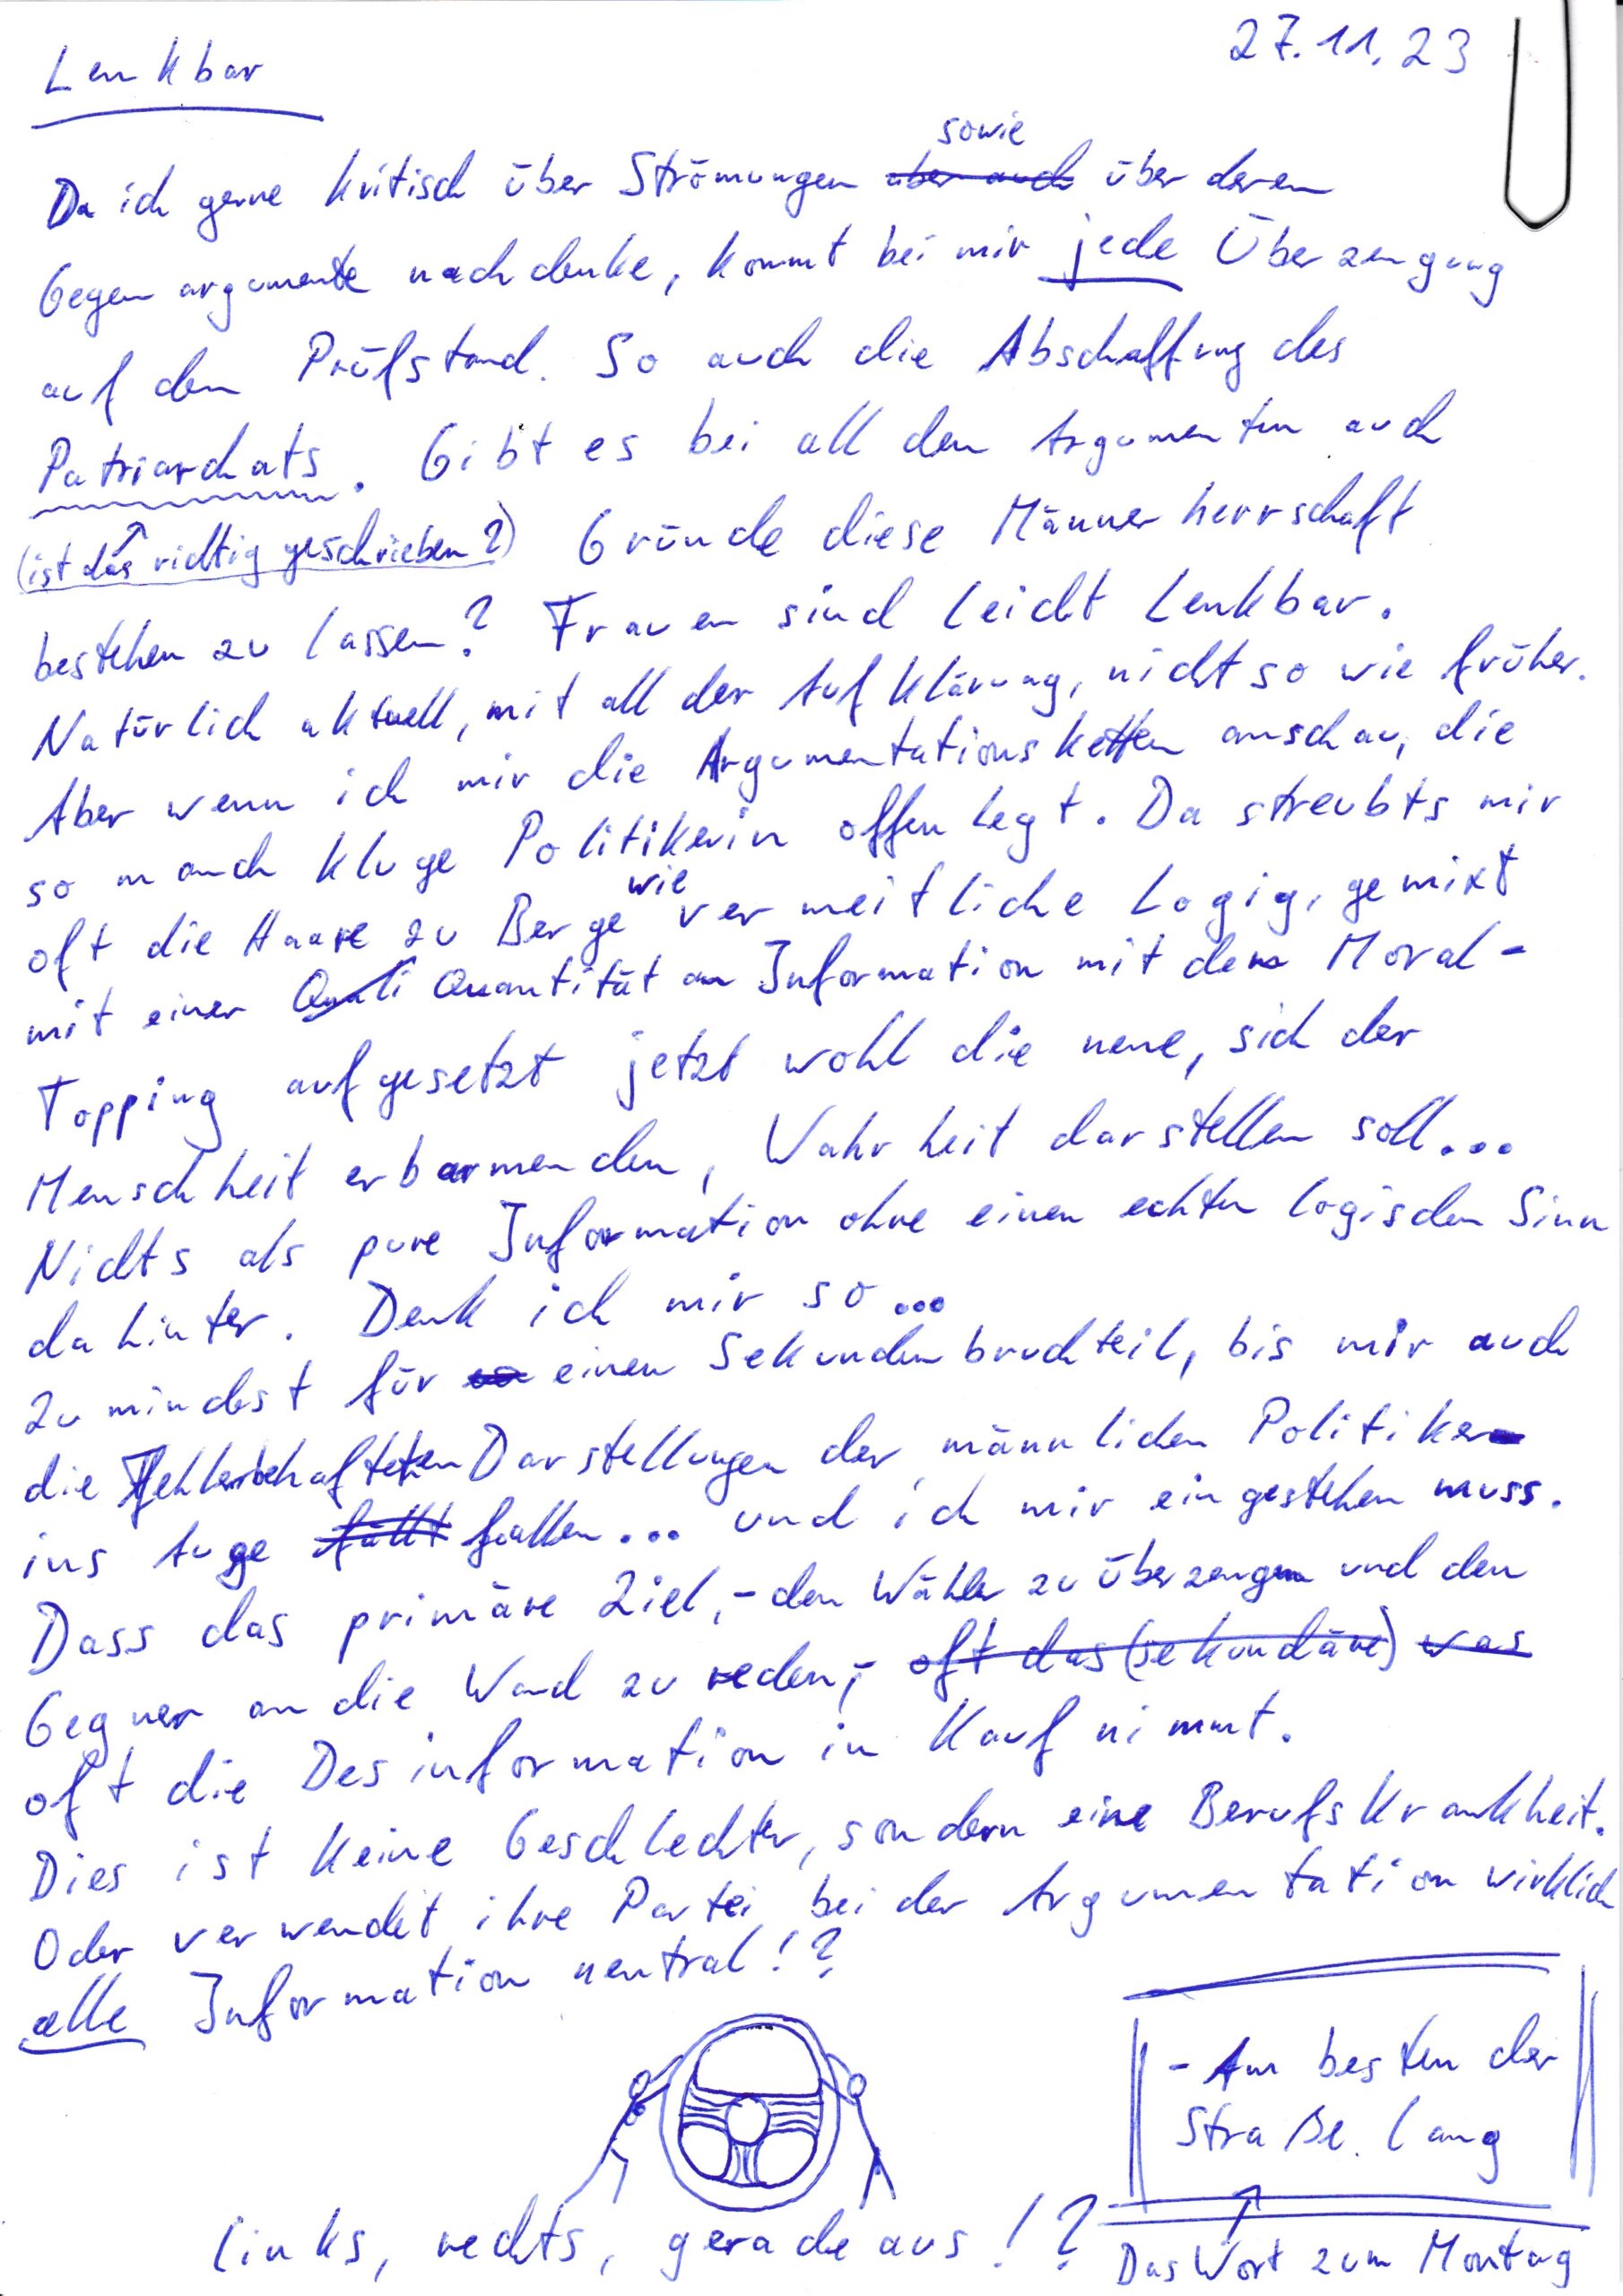 27.11.23
Lenkbar
sowie
Da ich gerne kritisch über Strömungen aber auch über deren
Gegenargumente nachdenke, kommt bei mir jede Überzeugung
auf den Prüfstand. So auch die Abschaffung des
Patriarchats. Gibt es bei all den Argumenten auch
(ist das richtig geschrieben?) Gründe diese Männerherrschaft
bestehen zu lassen? Frauen sind leicht Lenkbar.
Natürlich aktuell, mit all der Aufklärung, nicht so wie früher.
Aber wenn ich mir die Argumentationsketten anschau, die
so manch kluge Politikerin offen legt. Da streubts mir
wie
oft die Haare zu Berge vermeitliche Logig, gemixt
mit einer Quali Quantität an Information mit dem Moral-
Topping aufgesetzt jetzt wohl die neue, sich der
Menschheit erbarmenden, Wahrheit darstellen soll...
Nichts als pure Information ohne einen echten logischen Sinn
dahinter. Denk ich mir so...
Zumindest für einen Sekundenbruchteil, bis mir auch
die fehlerbehafteten Darstellungen der männlichen Politiker
ins Auge fällt fallen... und ich mir eingestehen muss.
Dass das primäre Ziel, - den Wähler zu überzeugen und den
Gegner an die Wand zu reden, - oft das (sekundäre) was
oft die Desinformation in Kauf nimmt.
Dies ist keine Geschlechter, sondern eine Berufskrankheit.
Oder verwendet ihre Partei bei der Argumentation wirklich
alle Information neutral!?
- Am besten der
Straße lang
links, rechts, geradeaus!?
Das Wort zum Montag